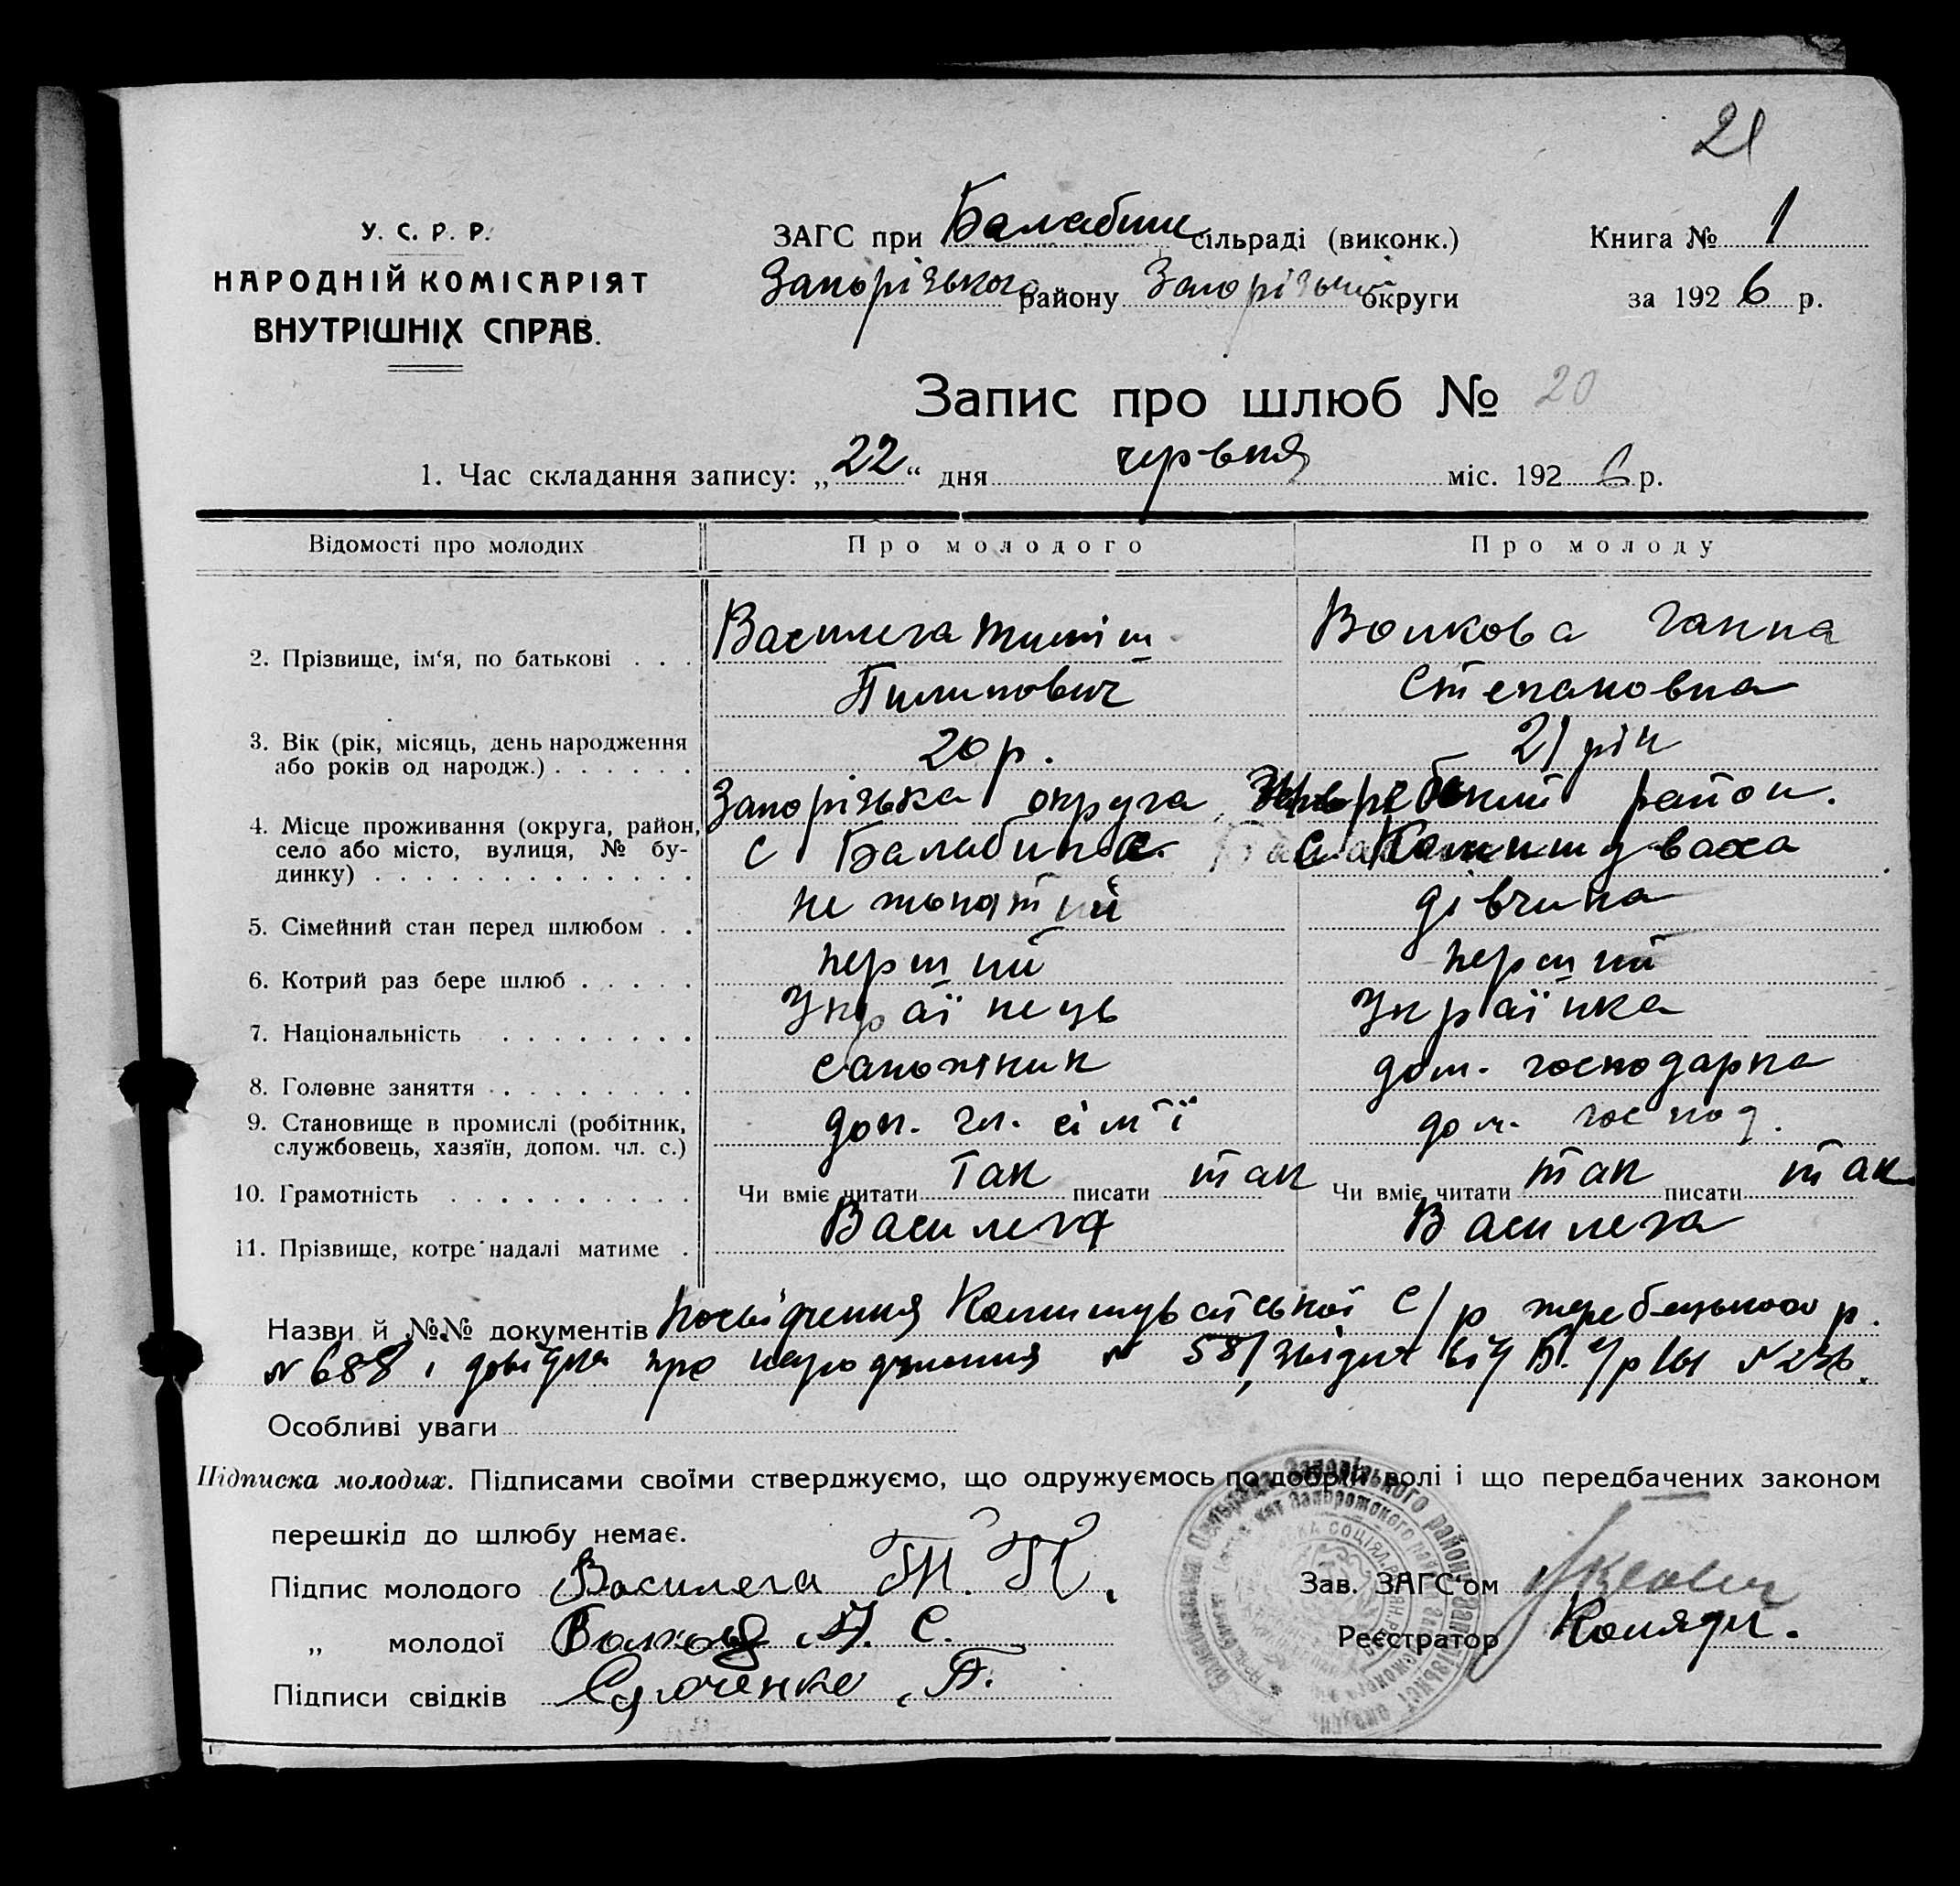 21
У. С. Р. Р.
НАРОДНІЙ КОМІСАРІЯТ
ВНУТРІШНІХ СПРАВ.
ЗАГС при Балабин сільраді (виконк.)
Запорізького району Запорізької округи
Книга № 1
за 1926 р.
Запис про шлюб № 20
1. Час складання запису: „22“ дня червня міс. 1926 р.
Відомості про молодих Про молодого Про молоду
2. Прізвище, ім‘я, по батькові . . . Василега Тиміш Волкова Ганна
Пилипович Степановна
3. Вік (рік, місяць, день народження
або років од народж.) . . . . . . 20 р. 21 рік
4. Місце проживання (округа, район, Запорізька округа, район.
село або місто, вулиця, № бу- с Балабинка. с Комишуваха
динку) . . . . . . . . . . . . .
5. Сімейний стан перед шлюбом . . не жонатий дівчина
6. Котрий раз бере шлюб . . . . . перший перший
7. Національність . . . . . . . . Українець Українка
8. Головне заняття . . . . . . . . сапожник дом. господарка
9. Становище в промислі (робітник,
службовець, хазяїн, допом. чл. с.) доп. чл. сім'ї дом. господ.
10. Грамотність . . . . . . . . . . Чи вміє читати так писати так Чи вміє читати так писати так
11. Прізвище, котре надалі матиме . Василега Василега
Назви й №№ документів посвідчення Комишуваської с/р жеребецького р.
№ 688 і довідка про народження № 58, від Б. с/р №236.
Особливі уваги
Підписка молодих. Підписами своїми стверджуємо, що одружуємось по добрій волі і що передбачених законом
перешкід до шлюбу немає.
Підпис молодого Василега Т. П.
„ молодої Волкова А. С.
Підписи свідків П.
Зав. ЗАГС‘ом
Реєстратор Коляди.